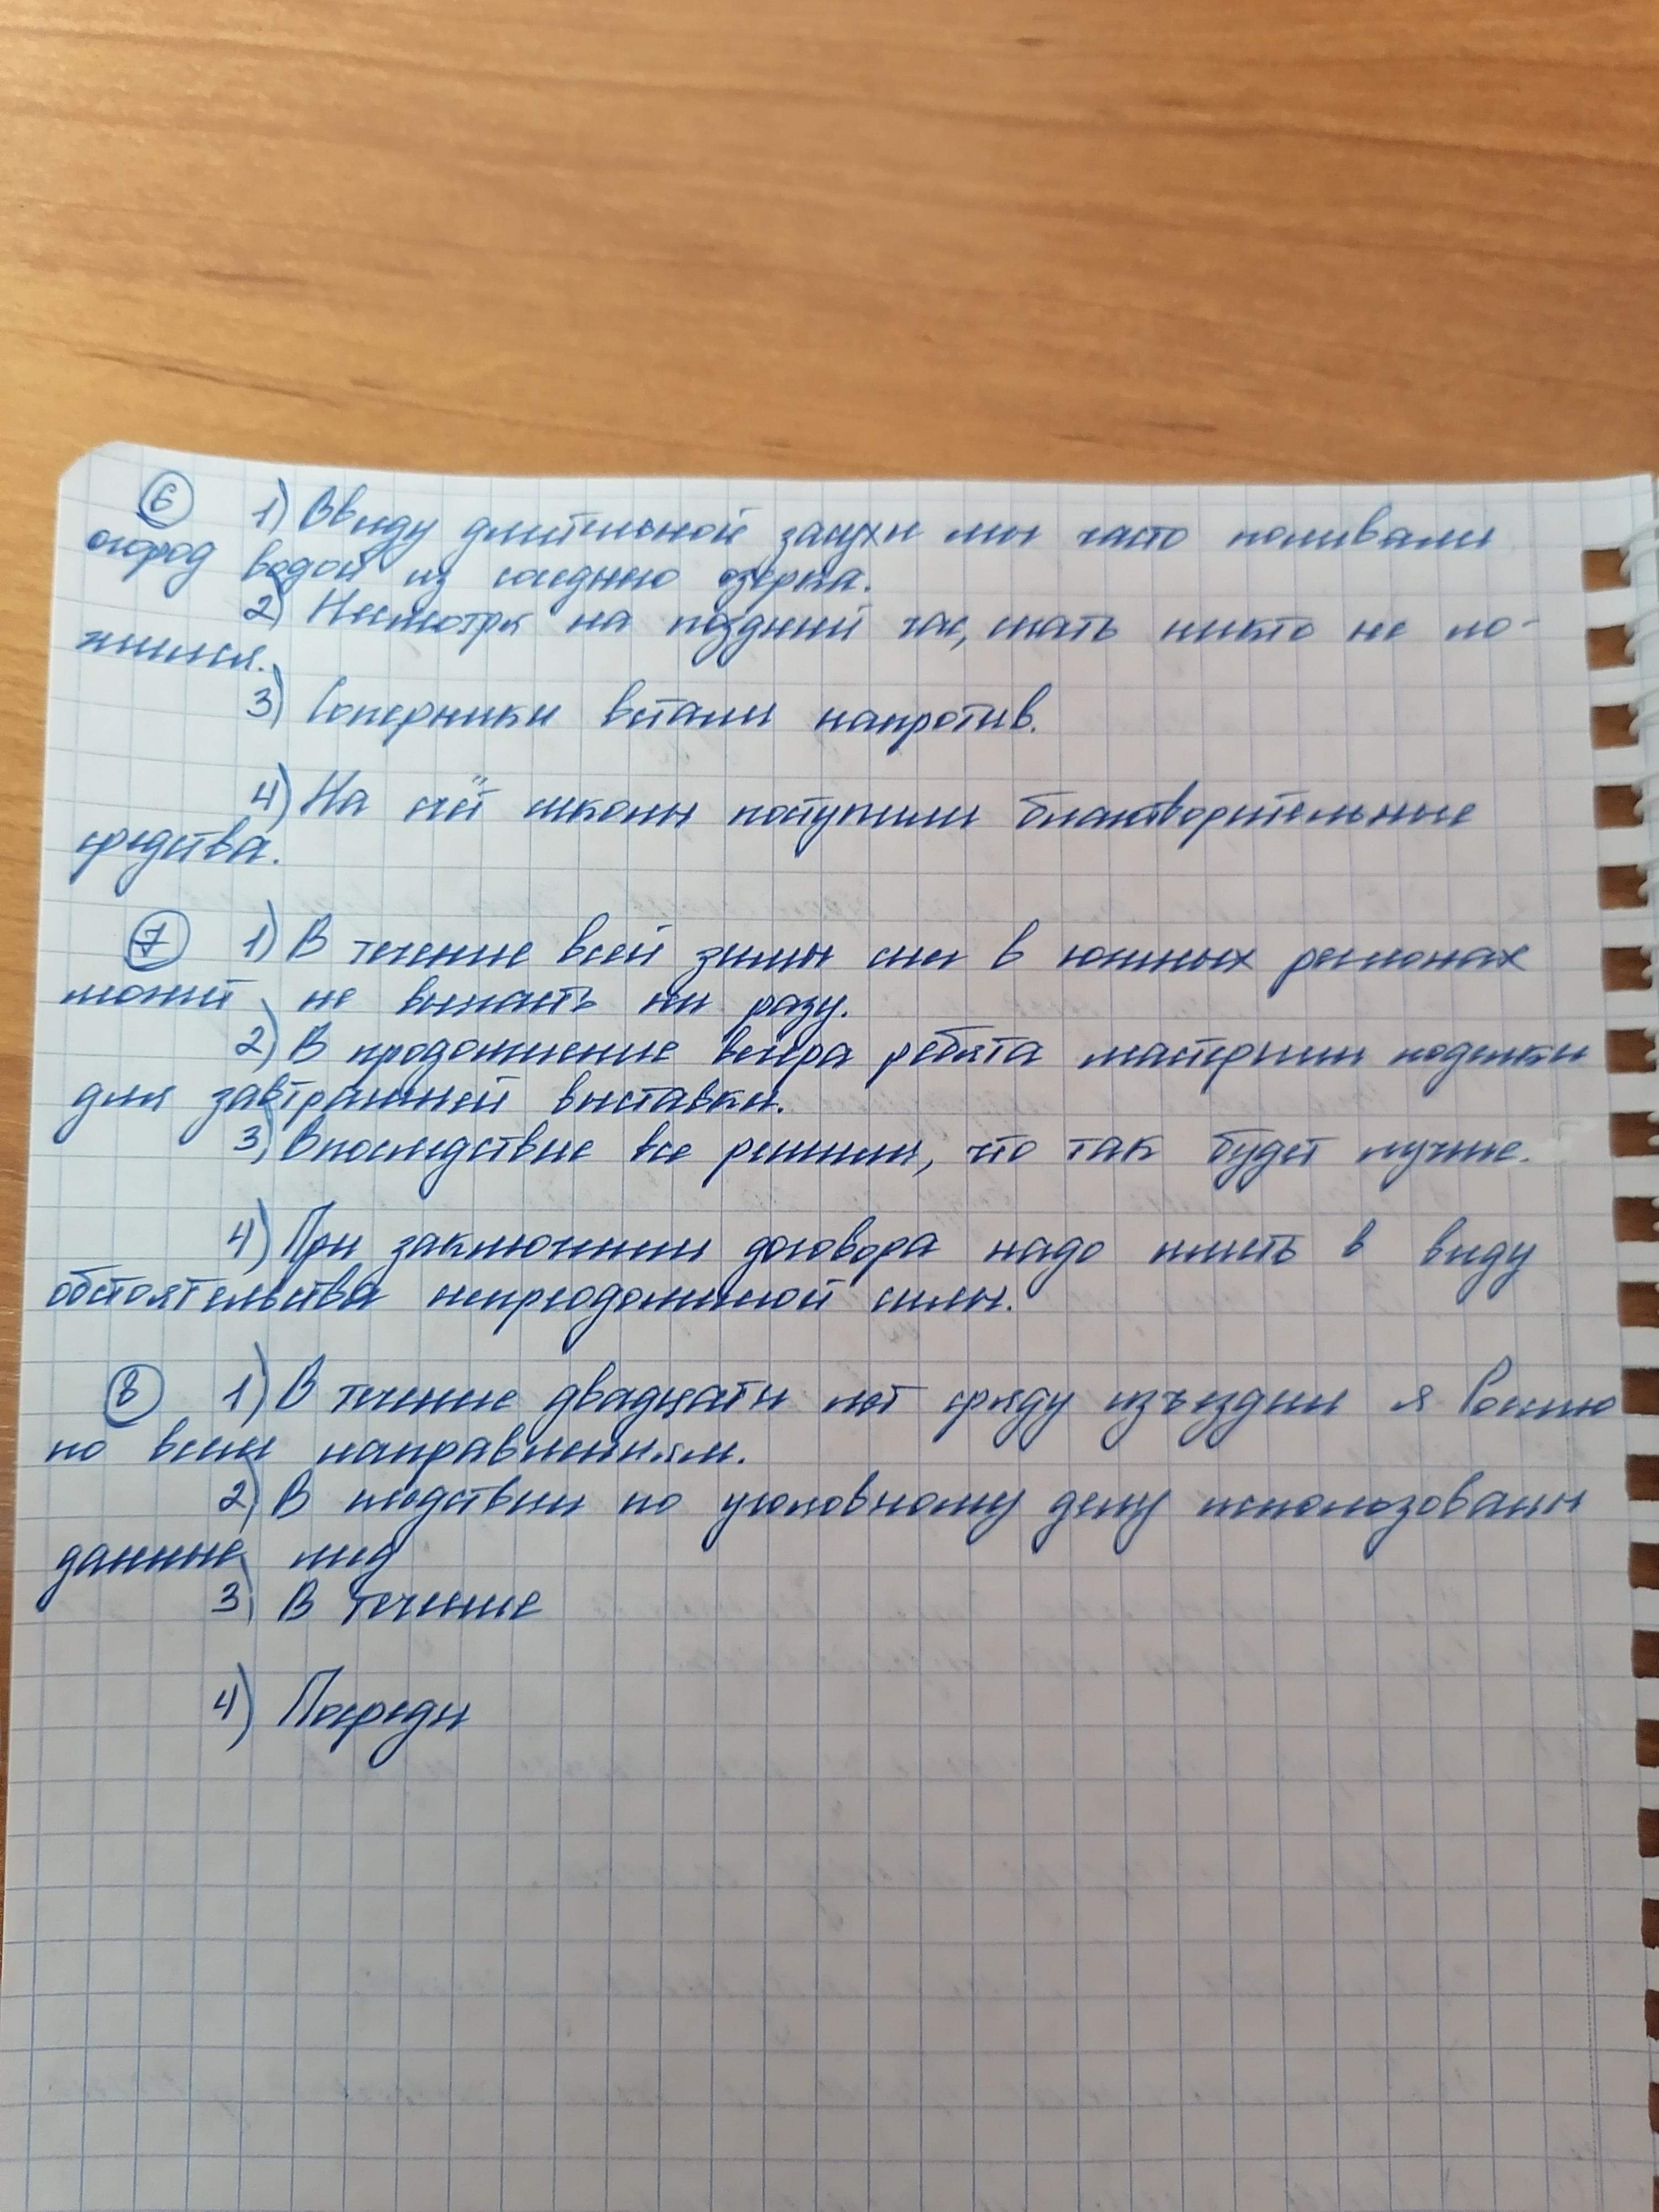 6 1) Ввиду длительной засухи мы часто поливали
огород водой из соседнего озерка.
2) Несмотря на поздний час, спать никто не ло-
жился.
3) Соперники встали напротив.
4) На счёт школы поступили благотворительные
средства.
7 1) В течение всей зимы снег в южных регионах
может не выпасть ни разу.
2) В продолжение вечера ребята мастерили поделки
для завтрашней выставки.
3) Впоследствие все решили, что так будет лучше.
4) При заключении договора надо иметь в виду
обстоятельства непреодолимой силы.
8 1) В течение двадцати лет сряду изъездил я Россию
по всем направлениям.
2) В следствии по уголовному делу использованы
данные
3) В течение
4) Посреди